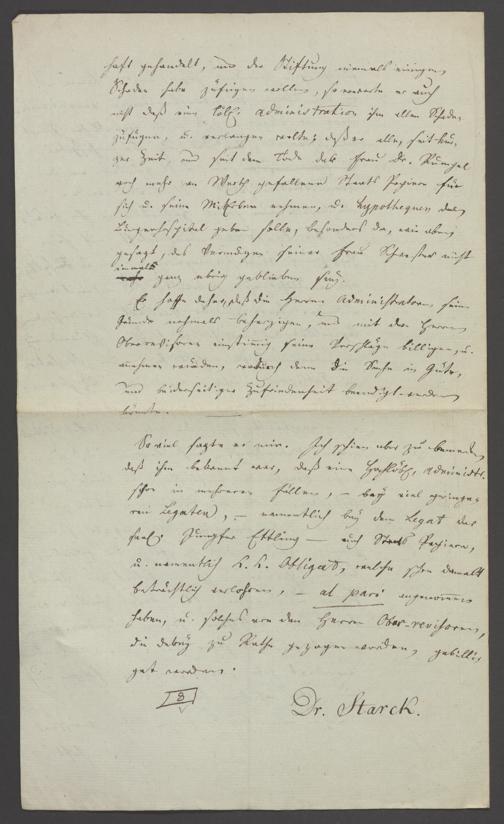 haft gehandelt, und der Stiftung niemals einigen
Schaden habe zufügen wollen, so erwarte er auch
nicht daß eine löbl. Administration ihm allen Schaden
zufügen, u. verlangen wollte, daß er alle, seit kur-
zer Zeit, und seit dem Tode der Frau Dr. Rumpel
noch mehr an Werth gefallenen Staats Papiere für
sich u. seine Miterben nehmen, die Hypothequen dem
Bürgerhospital geben solle, besonders da, wie oben
gesagt, das Vermögen seiner Frau Schwester nicht
einmal
ganz übrig geblieben sey.
Er hoffe daher, daß die Herren Administratoren, seine
Gründe nochmals beherzigen, und mit den Herren
Oberrevisoren einstimmig seine Vorschläge billigen, u.
annehmen würden, wodurch denn die Sache in Güte,
und beiderseitiger Zufriedenheit beendigt werden
könnte.
So viel sagte er mir. Ich schien aber zu bemerken,
daß ihm bekannt war, daß eine Hochlöbl. Administr.
schon in mehreren Fällen, – bey viel geringe-
ren Legaten, – namentlich bey dem Legat der
seel. Jungfer Ettling – auch Staats Papiere,
u. namentlich k. k. Obligat, welche schon damals
beträchtlich verlohren, – al pari angenommen
haben, u. solches von den Herren Ober-revisoren,
die dabey zu Rathe gezogen worden, gebilli-
get worden.
8
Dr. Starck.